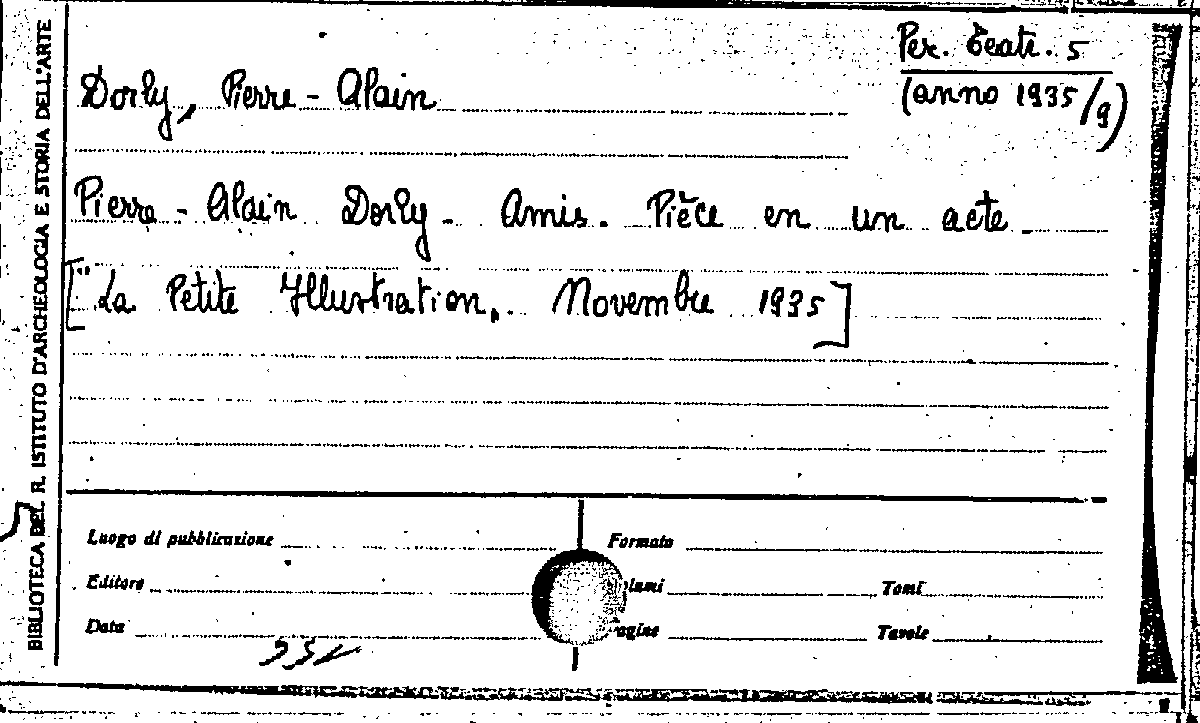 BIBLIOTECA DEL R. ISTITUTO D'ARCHEOLOGIA E STORIA DELL'ARTE
Per. Teatr. 5
(anno 1935/9)
Dorly, Pierre-Alain
Pierre-Alain Dorly - Amis. Pièce en un acte -
["La Petite Illustration„. Novembre 1935]
Luogo di pubblicazione
Formato
Editore
Tomi
Data
Tavole